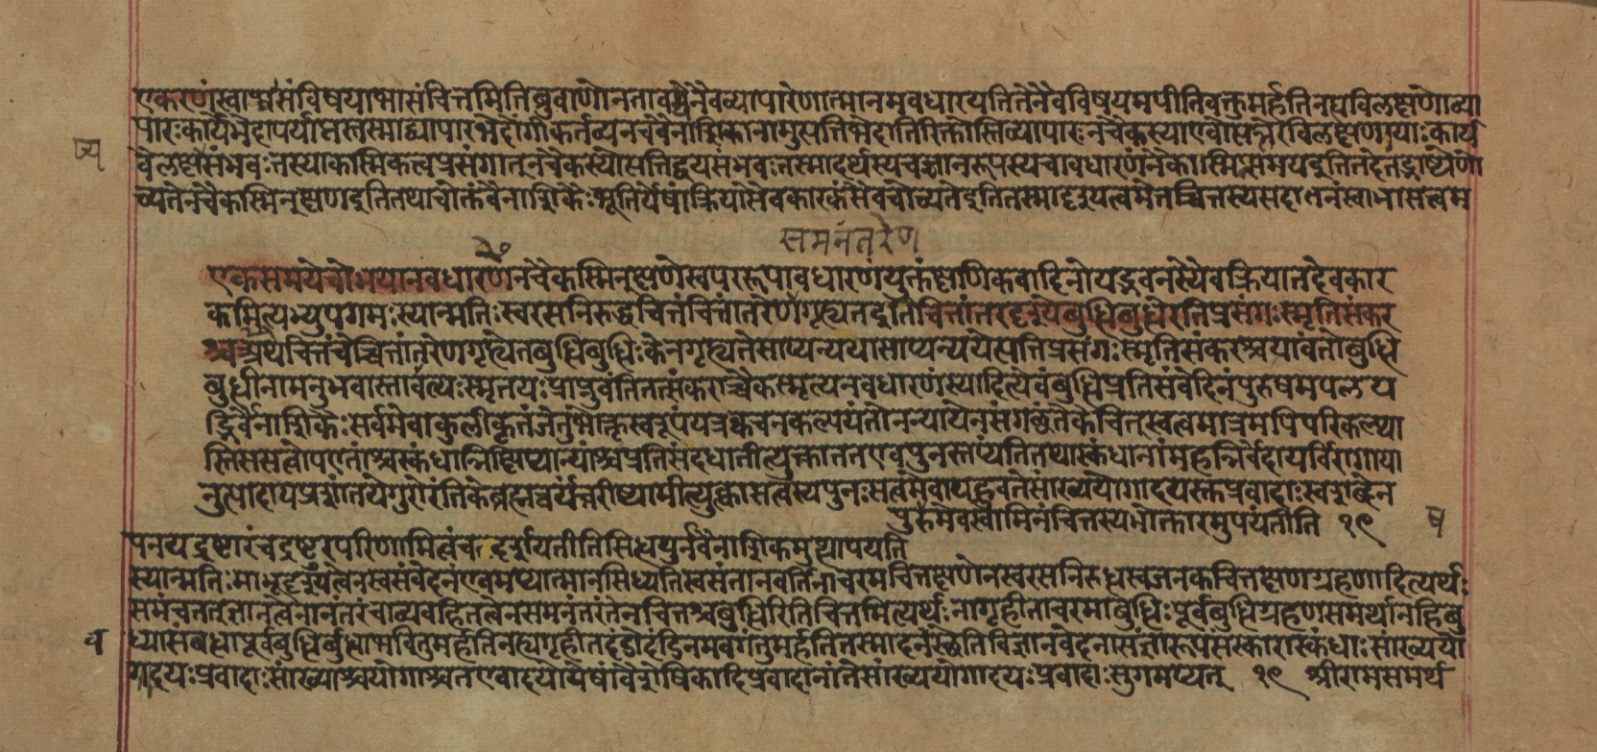 एकरणंस्वाभासंविषयाभासंचित्तमितिब्रुवाणोनतावद्येनैवव्यापारेणात्मानमवधारयतितेनैवविषयमपीतिवक्तुमर्हतिनह्यविलक्षणोव्या
पारःकार्यभेदापर्याप्तस्तस्माद्व्यापारभेदोंगीकर्तव्यनचवैनाशिकानामुत्पत्तिभेदातिरिक्तोस्तिव्यापारःनचैकस्याएवोत्पत्तेरविलक्षणायाःकार्य
ष्य
वैलक्षण्यसंभवःतस्याकस्मिकत्वप्रसंगात्नचैकस्योत्पत्तिद्वयसंभवःतस्मादर्थस्यचज्ञानरूपस्यचावधारणंनैकास्मिन्समयइतितदेतद्भाष्येणो
च्यतेनचैकस्मिन्क्षणइतितथाचोक्तंवैनाशिकैःभूतिर्येषांक्रियासैवकारकंसैवचोच्यतेइतितस्मादृश्यत्वमेतच्चित्तस्यसदातनंस्वाभासत्वम
२० समनंतरेण
एकसमयेचोभयानवधारणंनचैकस्मिन्क्षणेस्वपररूपावधारणंयुक्तंक्षणिकवादिनोयद्भवनंसैवक्रियातदेवकार
कमित्यभ्युपगमःस्यान्मतिःस्वरसनिरुद्धचित्तंचित्तांतरेणगृह्यतइतिचित्तांतरदृश्येबुद्धिबुद्धेरतिप्रसंगःस्मृतिसंकर
श्चअथचित्तंचेच्चित्तांतरेणगृह्येतबुद्धिबुद्धिःकेनगृह्यतेसाप्यन्ययासाप्यन्ययेत्यतिप्रसंगःस्मृतिसंकरश्चयावंतोबुद्धि
बुधीनामनुभवास्तावंत्यःस्मृतयःप्राप्नुवंतितत्संकराच्चैकस्मृत्यनवधारणंस्यादित्येवंबुद्धिप्रतिसंवेदिनंपुरुषमपलप
द्भिर्वैनाशिकैःसर्वमेवाकुलीकृतंतेतुभोक्तृस्वरूपंयत्रक्वचनकल्पयंतोनन्यायेनसंगछंतेकेचित्सत्त्वमात्रमपिपरिकल्प्या
स्तिससत्वोयएतान्पंचस्कंधान्निक्षिप्यान्यांश्चप्रतिसंदधातीत्युक्त्वाततएवपुनस्त्रस्यंतितथास्कंधानांमहन्निर्वेदायविरागाया
नुत्पादायप्रशांतयेगुरोरंतिकेब्रह्मचर्यंचरीष्यामीत्युक्त्वासत्वस्यपुनःसत्वमेवापह्नुवतेसांख्ययोगादयस्तुप्रवादाःस्वशब्देन
पुरुषमेवस्वामिनंचित्तस्यभोक्तारमुपयंतीति १९ ष
पनयद्रष्टारंचद्रष्टुरपरिणामित्वंचदर्शयतीतिसिद्धंपुनर्वैनाशिकमुत्थापयति
स्यान्मतिःमाभूदृश्यत्वेनस्वसंवेदनंएवमप्यात्मानसिध्यतिस्वसंतानवर्तिनाचरमचित्तक्षणेनस्वरसनिरुद्धस्वजनकचित्तक्षणग्रहणादित्यर्थः
समंचतत्ज्ञानत्वेनानंतरंचाव्यवहितत्वेनसमनंतरंतेनचित्तश्चबुद्धिरितिचित्तमित्यर्थःनागृहीताचरमाबुद्धिःपूर्वबुद्धिग्रहणसमर्थानहिबु
व
ध्यासंबद्धापूर्वबुद्धिर्बुद्धाभवितुमर्हतिनह्यगृहीतदंडोदंडिनमवगंतुमर्हतितस्मादनवस्थेतिविज्ञानवेदनासंज्ञारूपसंस्काराःस्कंधाःसांख्ययो
गादयःप्रवादाःसांख्याश्चयोगाश्चतएवादयोयेषांवैशेषिकादिप्रवादानांतेसांख्ययोगादयःप्रवादाःसुगममन्यत् १९ श्रीरामसमर्थ